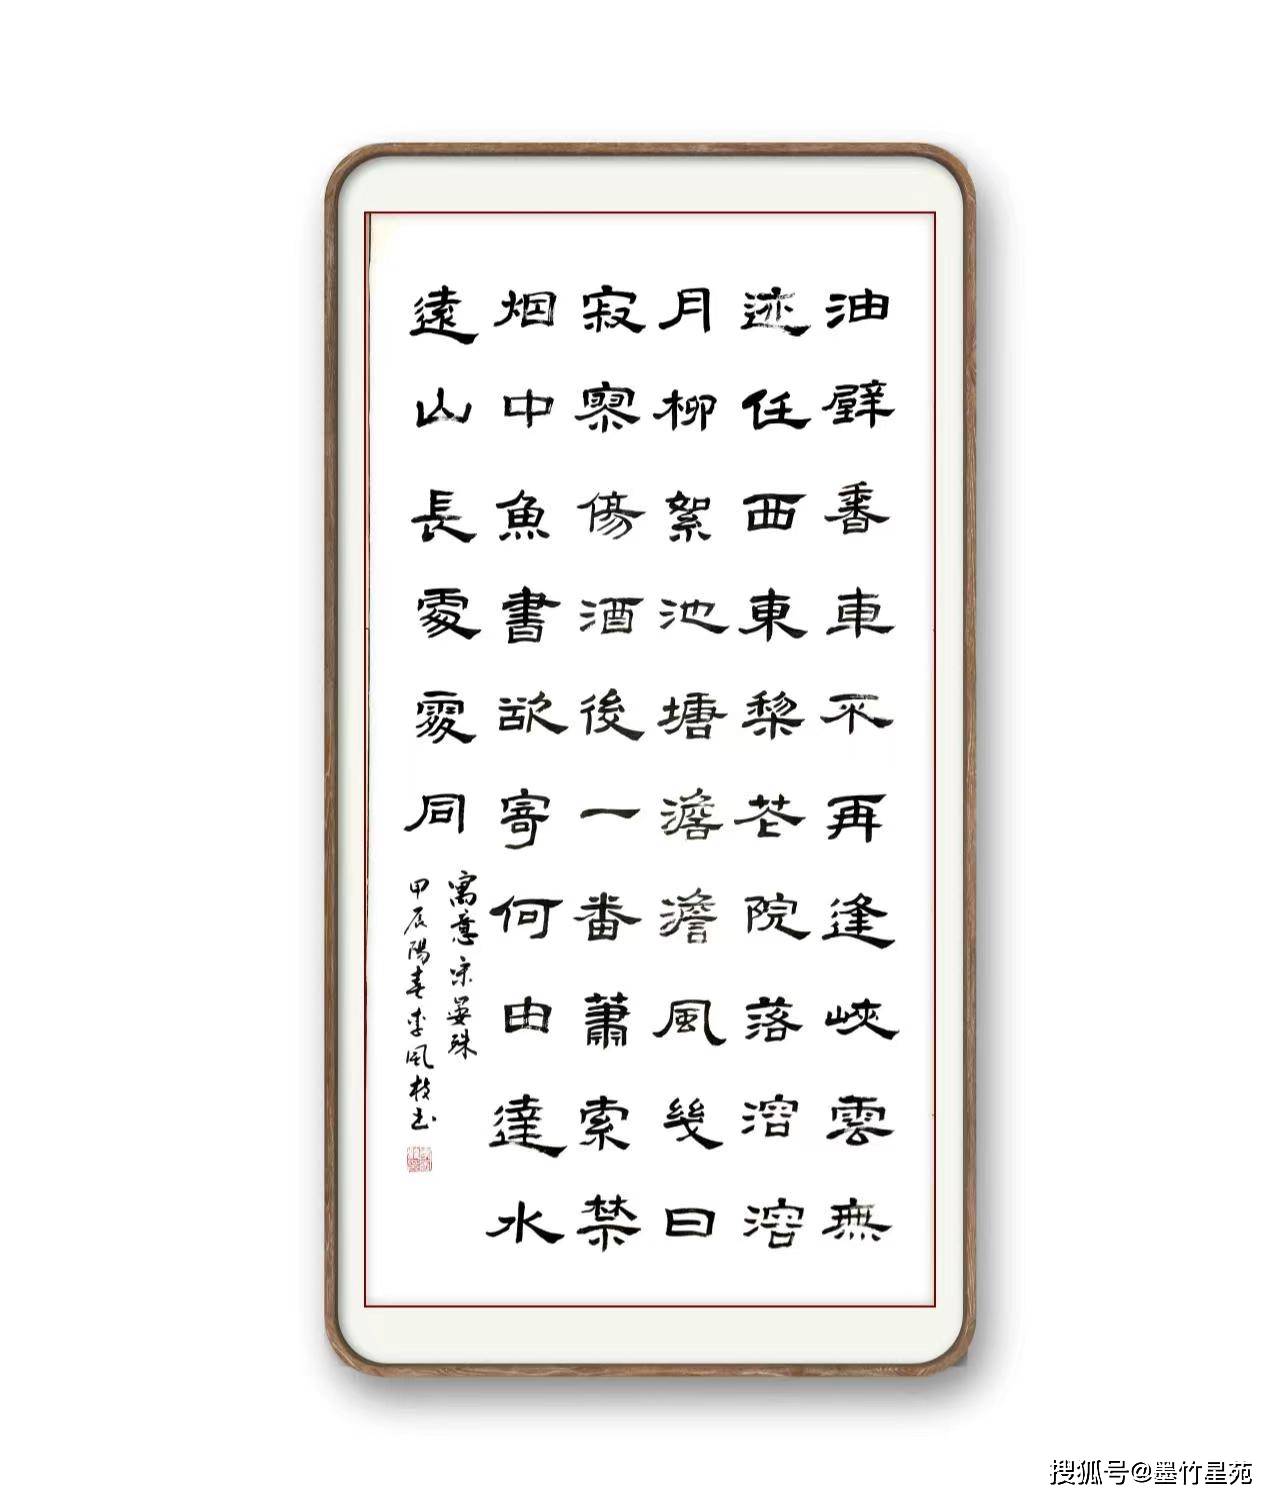 油壁香車不再逢峽雲無
迹任西東棃花院落溶溶
月柳絮池塘澹澹風幾日
寂寥傷酒後一番蕭索禁
烟中魚書欲寄何由達水
遠山長處處同
寓意宋晏殊
甲辰陽春李風枝书
搜狐号@墨竹星苑